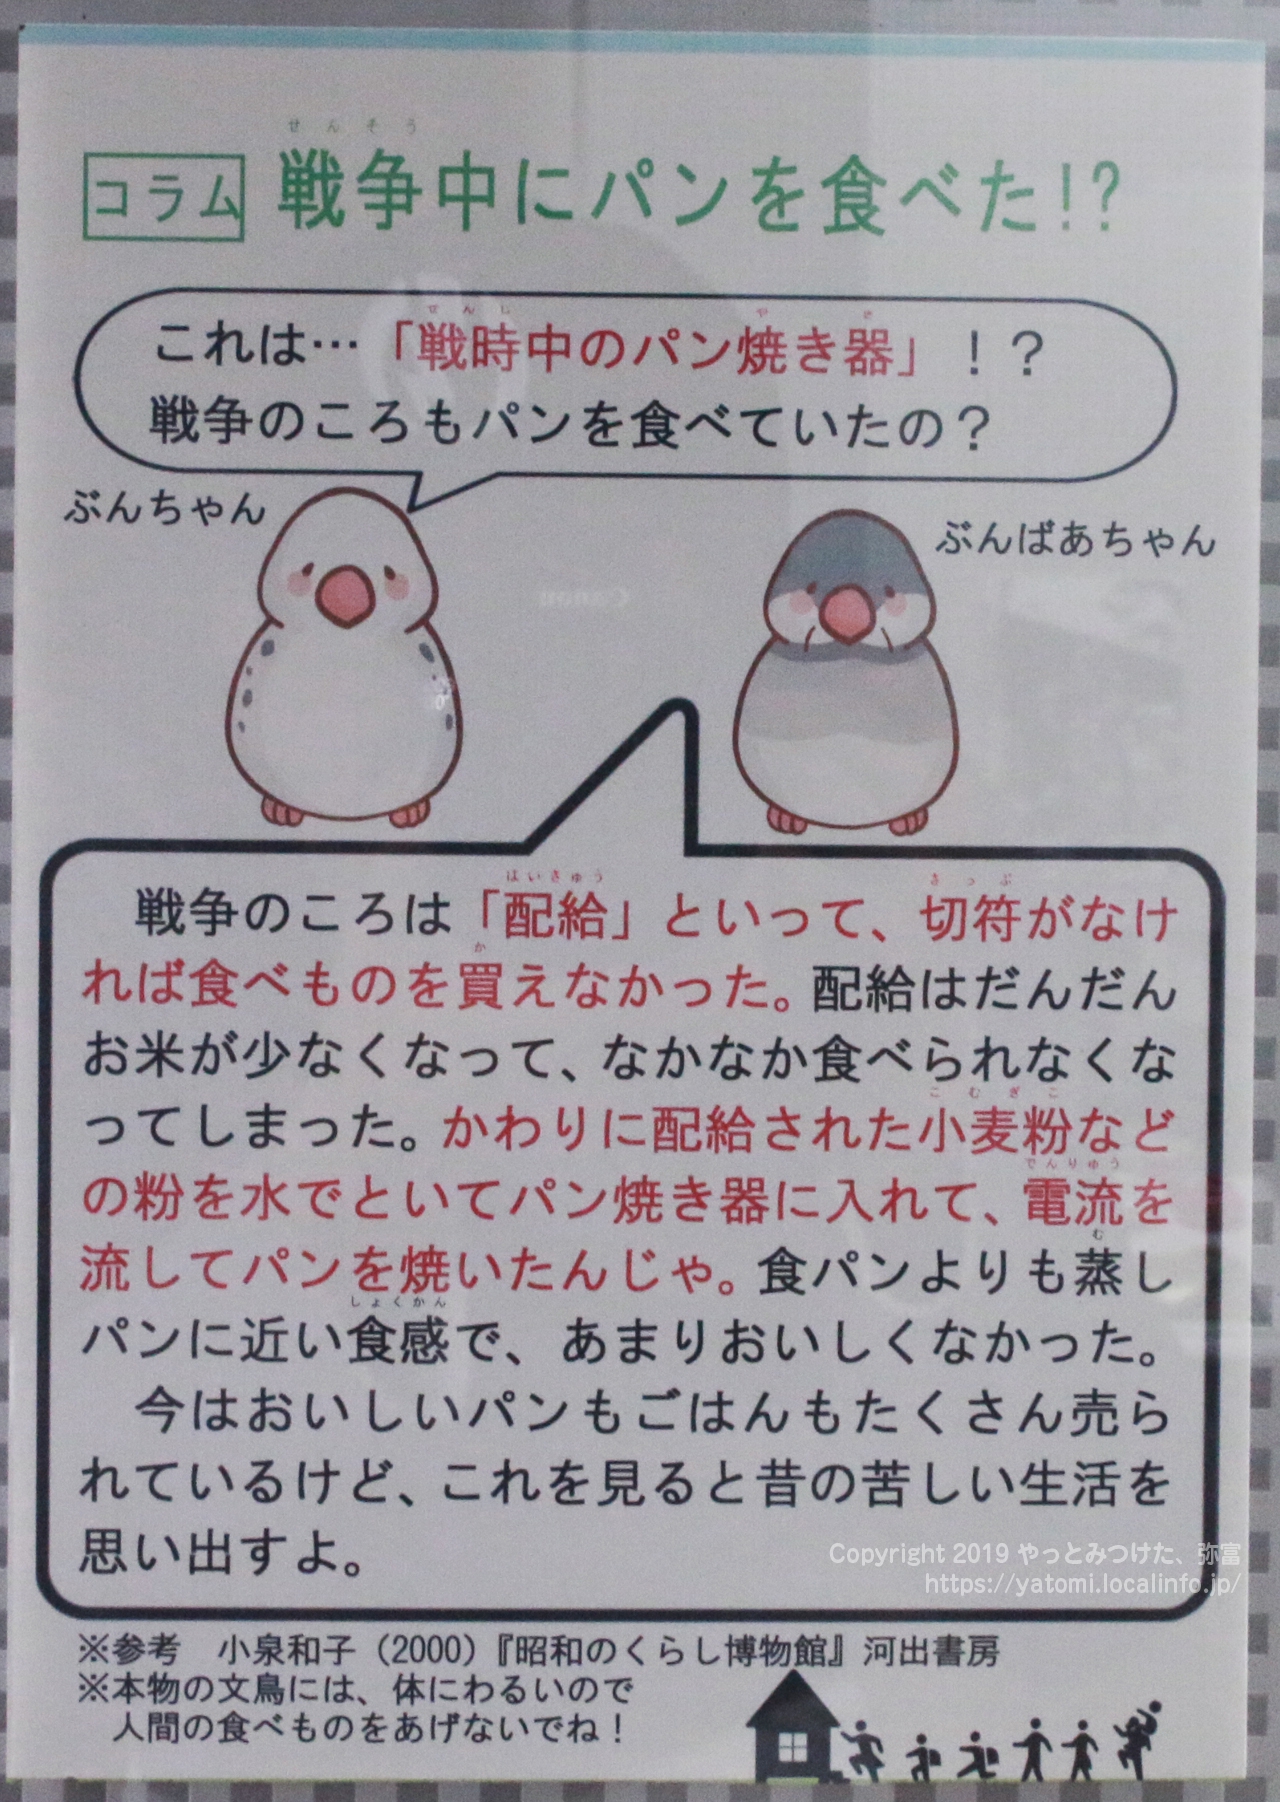 コラム 戦争中にパンを食べた!?
これは…「戦時中のパン焼き器」！？
戦争のころもパンを食べていたの？
ぶんちゃん
ぶんばあちゃん
戦争のころは「配給」といって、切符がなけ
れば食べものを買えなかった。配給はだんだん
お米が少なくなって、なかなか食べられなくな
ってしまった。かわりに配給された小麦粉など
の粉を水でといてパン焼き器に入れて、電流を
流してパンを焼いたんじゃ。食パンよりも蒸し
パンに近い食感で、あまりおいしくなかった。
今はおいしいパンもごはんもたくさん売ら
れているけど、これを見ると昔の苦しい生活を
思い出すよ。
Copyright 2019 やっとみつけた、弥富
https://yatomi.localinfo.jp/
※参考　小泉和子（2000）『昭和のくらし博物館』河出書房
※本物の文鳥には、体にわるいので
人間の食べものをあげないでね！